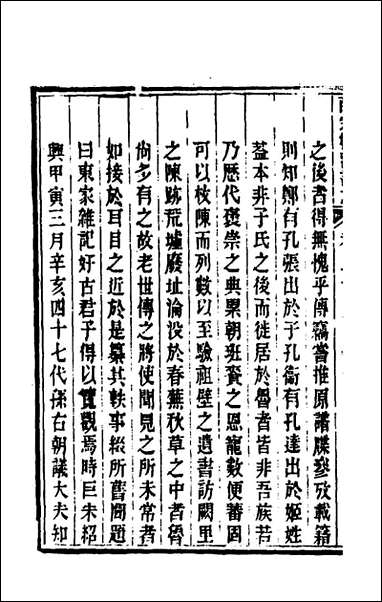 之後者得無愧乎傳竊嘗推原譜牒參攷載籍
則知鄭有孔張出於子孔衞有孔達出於姬姓
蓋本非子氏之後而徙居於魯者皆非吾族若
乃歷代褒崇之典累朝班賚之恩寵數便蕃固
可以枚陳而列數以至驗祖壁之遺書訪闕里
之陳跡荒墟廢址淪没於春蕪秋草之中者魯
尚多有之故老世傳之將使聞見之所未常者
如接於耳目之近於是纂其軼事綴所舊聞題
曰東家雜記好古君子得以覽觀焉時巨宋紹
興甲寅三月辛亥四十七代孫右朝議大夫知